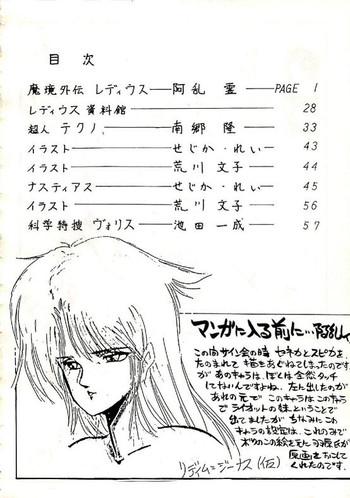 目 次
魔境外伝 レディウス――阿乱 霊――PAGE 1
レディウス資料館―― 28
超人 テクノ――南郷 隆―― 33
イラスト――せじか・れい―― 43
イラスト――荒川 文子―― 44
ナスティアス――せじか・れい―― 45
イラスト――荒川 文子―― 56
科学特捜 ヴォリス――池田 一成―― 57
マンガに入る前に…
この前サイン会の時 セネカとスピカを、
たのまれて 描きあぐねてしまったのです
が あのキャラは、ぼくは全然タッチ
してないんですよね. 左に出したのが
あれの元で このキャラはこのキャラ
で ライオットの妹ということで
出てましたが ちなみにこれ
キャラの設定は、これのみで
ボクのこの絵を元に
原画をおこして
くれたのです.
リディム=ジーナス (仮)